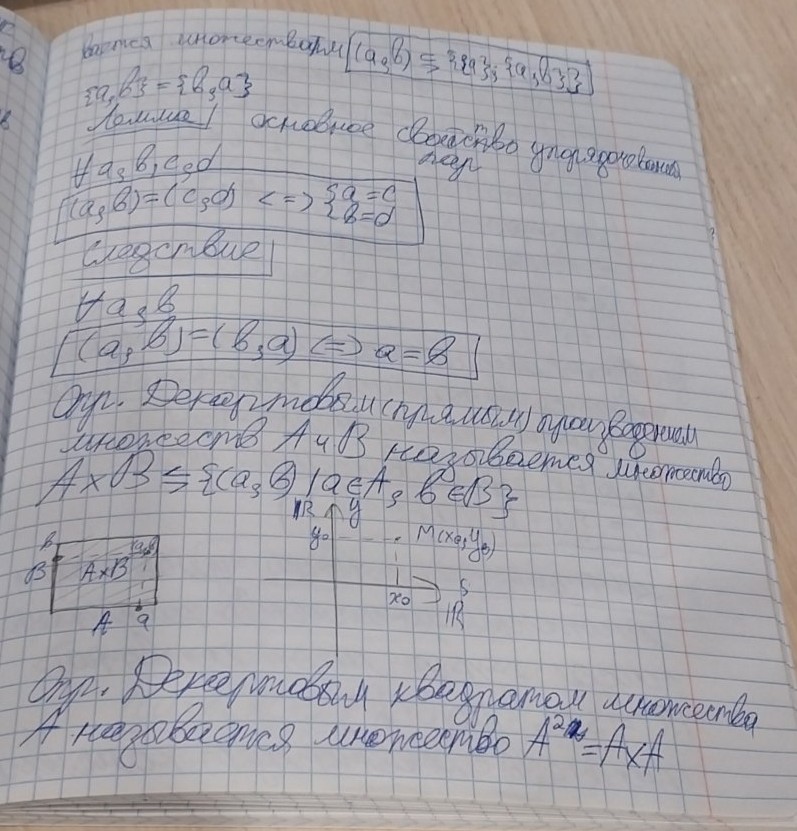 вается множеством (a,b) ≦ {{a}; {a,b}}
{a,b} = {b,a}
Лемма | основное свойство упорядочеван
пар
∀ a,b,c,d
(a,b)=(c,d) <=> {a=c
{b=d
Следствие
∀ a,b
(a,b)=(b,a) <=> a=b
Опр. Декартовым (прямым) произведением
множеств A и B называется множество
A×B ≦ {(a,b) | a∈A, b∈B}
ℝ y
b (a,b) y₀ M(x₀,y₀)
B A×B
A a x₀ ℝ
Опр. Декартовым квадратом множества
A называется множество A² = A×A